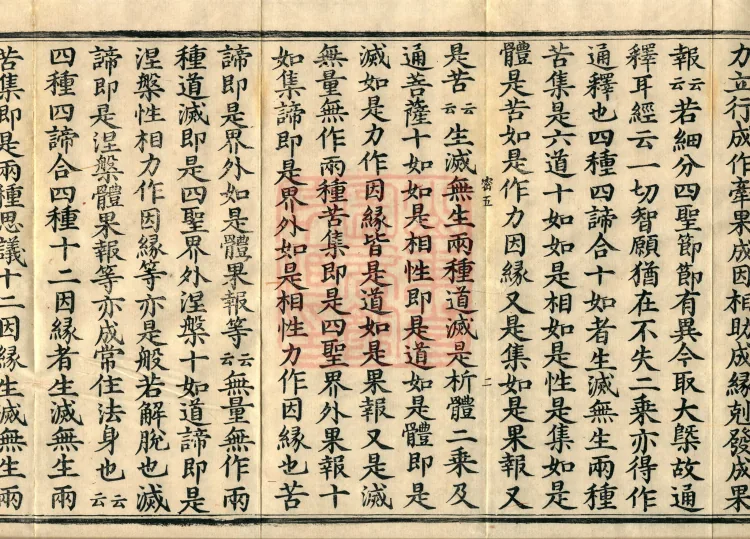 力立行成作牽果成因相助成緣剋發成果
報云云若細分四聖節節有異今取大槩故通
釋耳經云一切智願猶在不失二乘亦得作
通釋也四種四諦合十如者生滅無生兩種
苦集是六道十如如是相如是性是集如是
體是苦如是作力因緣又是集如是果報又
密五
二
是苦云云生滅無生兩種道滅是析體二乘及
通菩薩十如如是相性即是道如是體即是
滅如是力作因緣皆是道如是果報又是滅
無量無作兩種苦集即是四聖界外果報十
如集諦即是界外如是相性力作因緣也苦
諦即是界外如是體果報等云云無量無作兩
種道滅即是四聖界外涅槃十如道諦即是
涅槃性相力作因緣等亦是般若解脫也滅
諦即是涅槃體果報等亦成常住法身也云云
四種四諦合四種十二因緣者生滅無生兩
苦集即是兩種思議十二因緣生滅無生兩